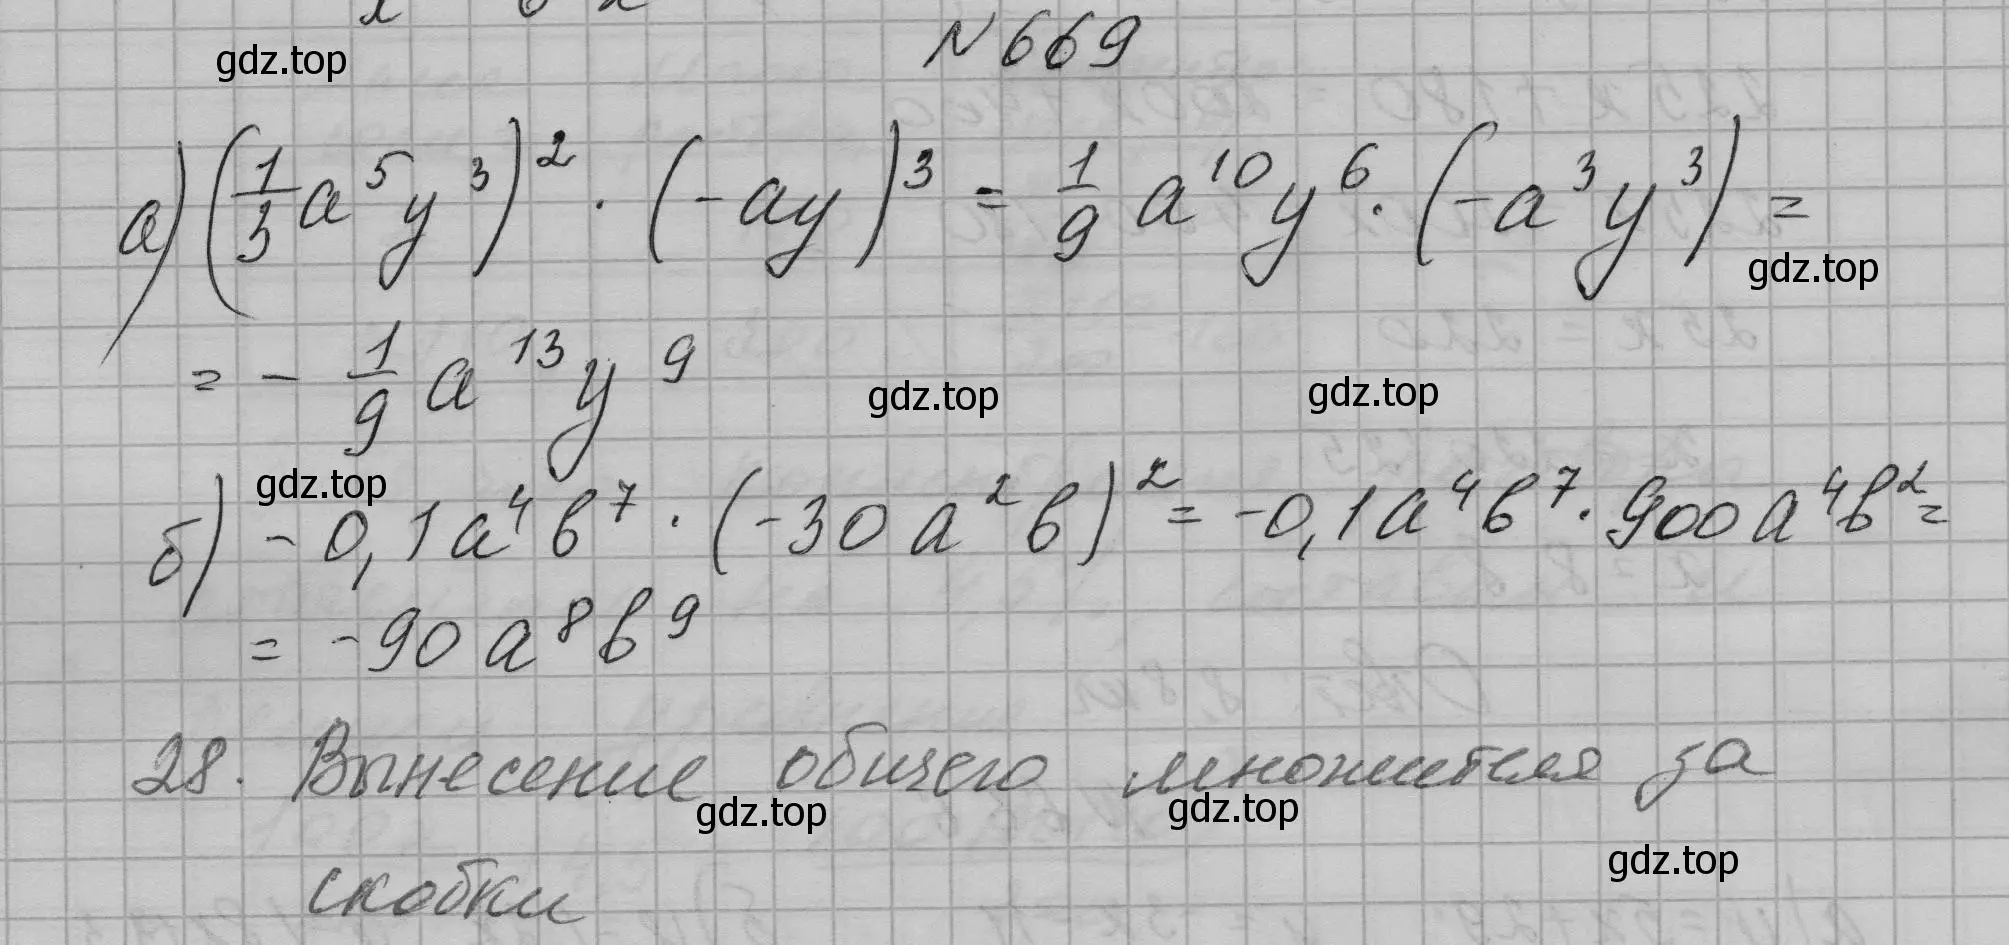 N 669
gdz.top
а) (1/3 a⁵y³)² · (-ay)³ = 1/9 a¹⁰y⁶ · (-a³y³) =
gdz.top
= - 1/9 a¹³y⁹
gdz.top gdz.top
gdz.top
б) -0,1a⁴b⁷ · (-30a²b)² = -0,1a⁴b⁷ · 900a⁴b² =
= -90a⁸b⁹
28. Вынесение общего множителя за
gdz.top gdz.top
gdz.top
скобки